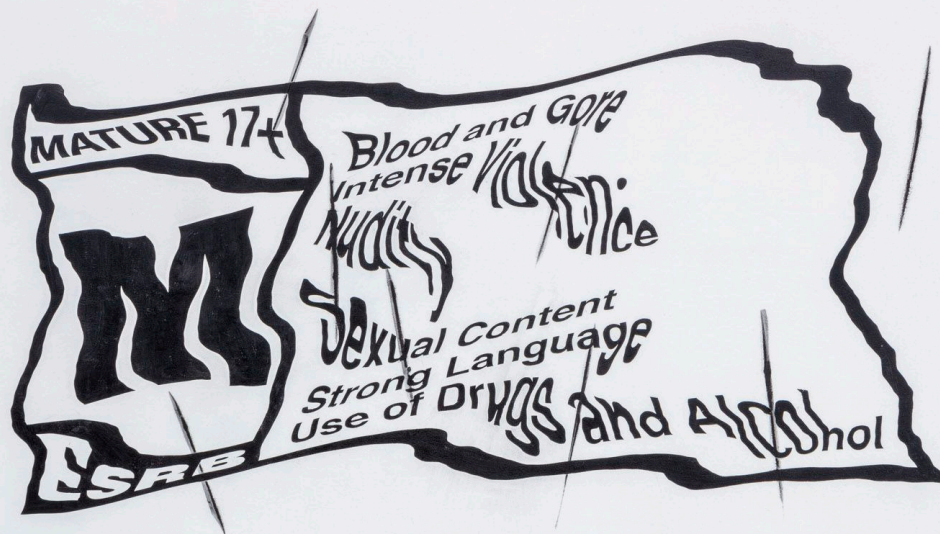 MATURE 17+
M
ESRB
Blood and Gore
Intense Violence
Nudity
Sexual Content
Strong Language
Use of Drugs and Alcohol